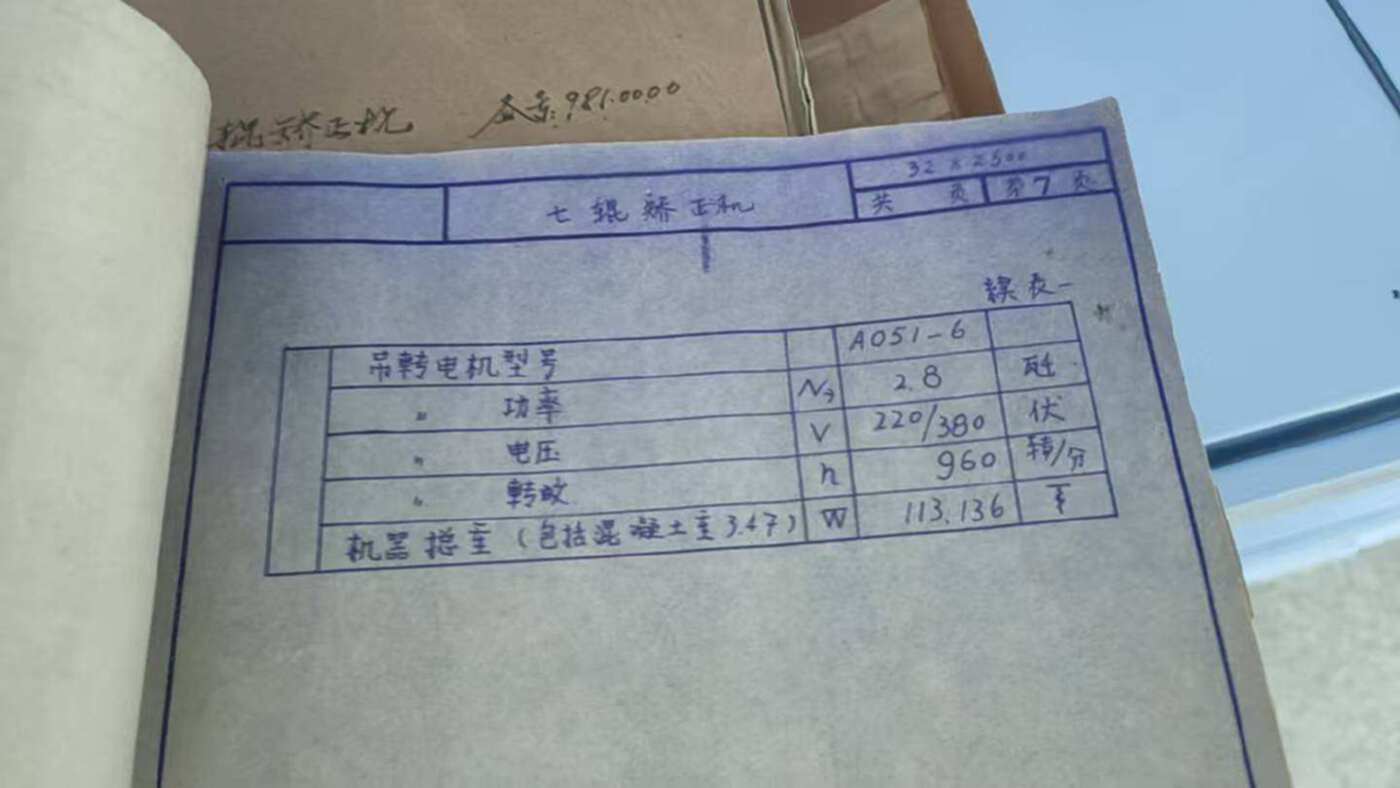 辊矫正机 备案:981.0000
32×2500
七辊矫正机
共 页 第7页
续表一
吊转电机型号 AO51-6
〃 功率 2.8 瓩
〃 电压 V 220/380 伏
〃 转 n 960 转/分
机器总重(包括混凝土重3.47) W 113.136